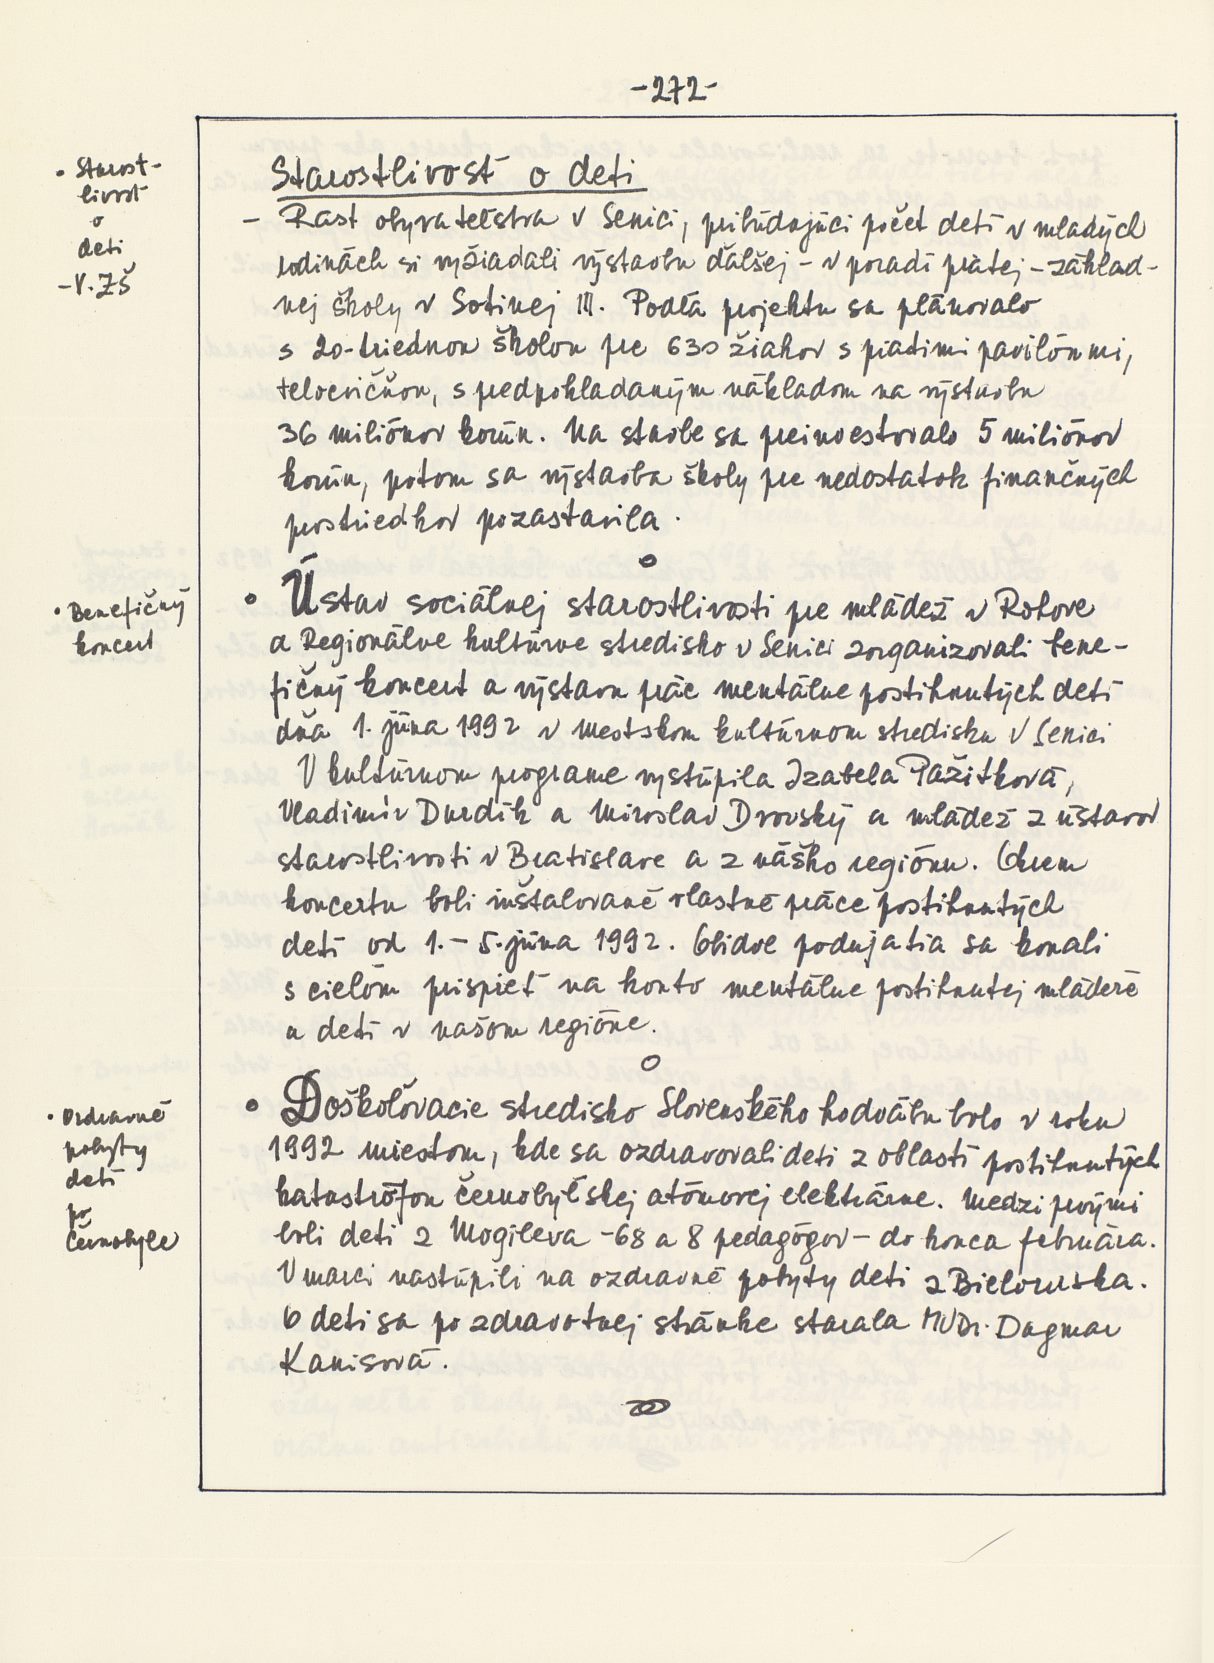 -272-
• Starost-
livosť
o
deti
- V. ZŠ
Starostlivosť o deti
- Rast obyvateľstva v Senici, pribúdajúci počet detí v mladých
rodinách si vyžiadali výstavbu ďalšej - v poradí piatej - základ-
nej školy v Sotinej III. Podľa projektu sa plánovalo
s 20-triednou školou pre 630 žiakov s piatimi pavilónmi,
telocvičňou, s predpokladaným nákladom na výstavbu
36 miliónov korún. Na stavbe sa preinvestovalo 5 miliónov
korún, potom sa výstavba školy pre nedostatok finančných
prostriedkov pozastavila.
• Benefičný
koncert
• Ústav sociálnej starostlivosti pre mládež v Rohove
a Regionálne kultúrne stredisko v Senici zorganizovali bene-
fičný koncert a výstavu prác mentálne postihnutých detí
dňa 1. júna 1992 v Mestskom kultúrnom stredisku v Senici
V kultúrnom programe vystúpila Izabela Pažítková,
Vladimír Durdík a Miroslav Drovský a mládež z ústavov
starostlivosti v Bratislave a z nášho regiónu. Okrem
koncertu boli inštalované vlastné práce postihnutých
detí od 1. - 5. júna 1992. Obidve podujatia sa konali
s cieľom prispieť na konto mentálne postihnutej mládeže
a detí v našom regióne.
• Ozdravné
pobyty
detí
po
Černobyle
• Doškoľovacie stredisko Slovenského hodvábu bolo v roku
1992 miestom, kde sa ozdravovali deti z oblastí postihnutých
katastrófou černobyľskej atómovej elektrárne. Medzi prvými
boli deti z Mogileva - 68 a 8 pedagógov - do konca februára.
V marci nastúpili na ozdravné pobyty deti z Bieloruska.
O deti sa po zdravotnej stránke starala MUDr. Dagmar
Kanisová.